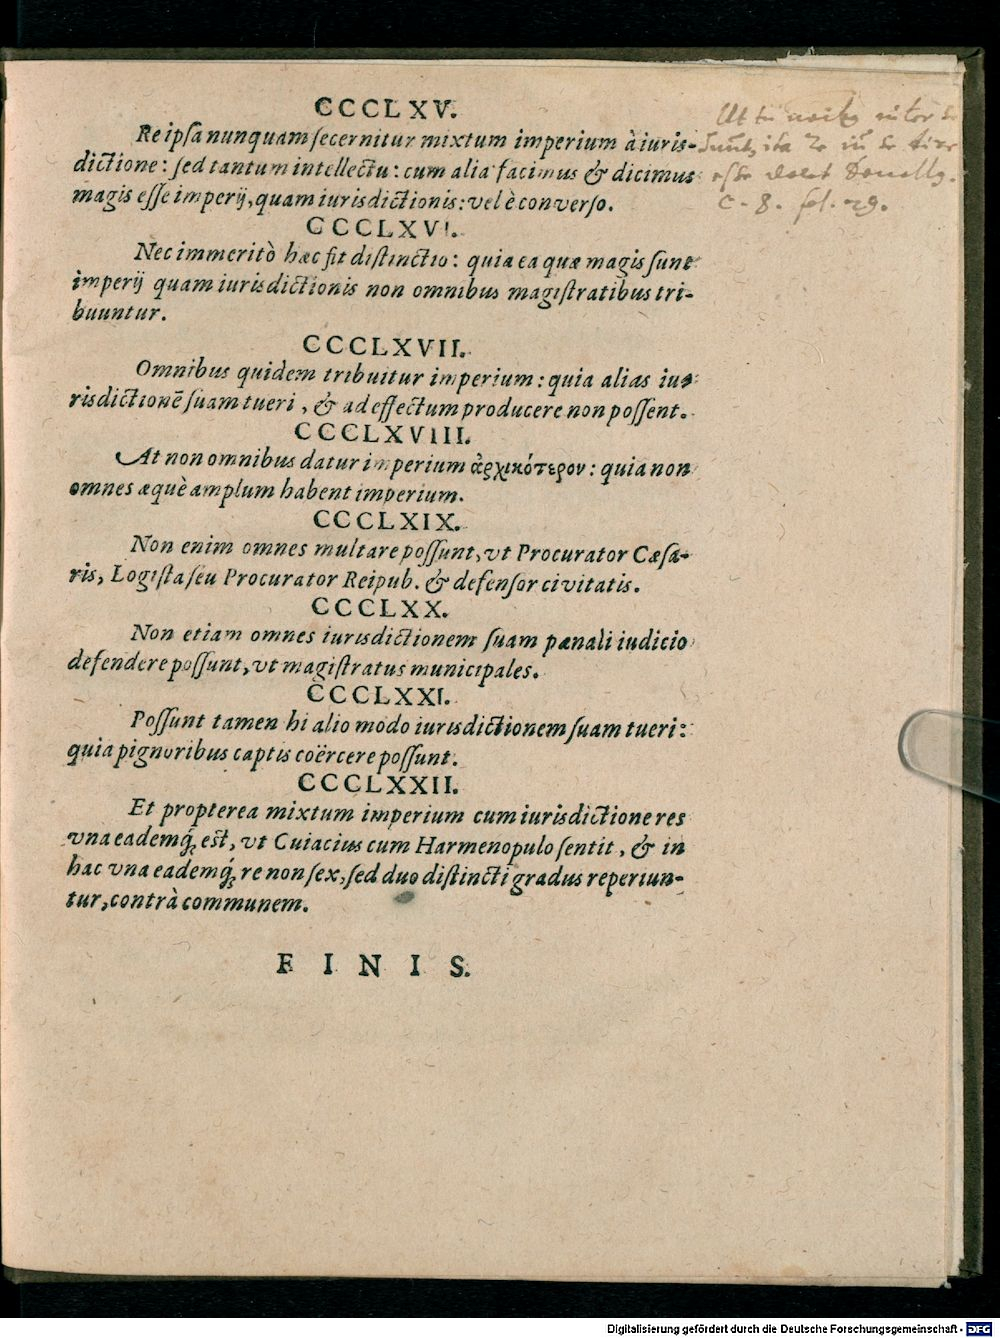 CCCLXV.
Re ipsa nunquam secernitur mixtum imperium à iuris-
dictione: sed tantum intellectu: cum alia facimus & dicimus
magis esse imperij, quam iurisdictionis: vel è converso.
CCCLXVI.
Nec immeritò hæc fit distinctio: quia ea quæ magis sunt
imperij quam iurisdictionis non omnibus magistratibus tri-
buuntur.
CCCLXVII.
Omnibus quidem tribuitur imperium: quia alias iu-
risdictionē suam tueri, & ad effectum producere non possent.
CCCLXVIII.
At non omnibus datur imperium ἀρχικότερον: quia non
omnes æquè amplum habent imperium.
CCCLXIX.
Non enim omnes multare possunt, vt Procurator Cæsa-
ris, Logista seu Procurator Reipub. & defensor civitatis.
CCCLXX.
Non etiam omnes iurisdictionem suam pænali iudicio
defendere possunt, vt magistratus municipales.
CCCLXXI.
Possunt tamen hi alio modo iurisdictionem suam tueri:
quia pignoribus captis coërcere possunt.
CCCLXXII.
Et propterea mixtum imperium cum iurisdictione res
vna eademq́; est, vt Cuiacius cum Harmenopulo sentit, & in
hac vna eademq́; re non sex, sed duo distincti gradus reperiun-
tur, contrà communem.
FINIS.
c. 8. fol. 29.
Digitalisierung gefördert durch die Deutsche Forschungsgemeinschaft - DFG